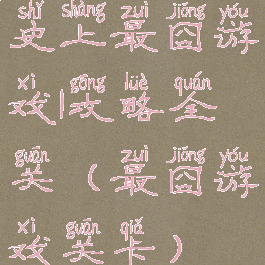 shǐ shàng zuì jiǒng yóu
史上最囧游
xì gōng lüè quán
戏攻略全
guān zuì jiǒng yóu
关（最囧游
xì guān qiǎ
戏关卡）